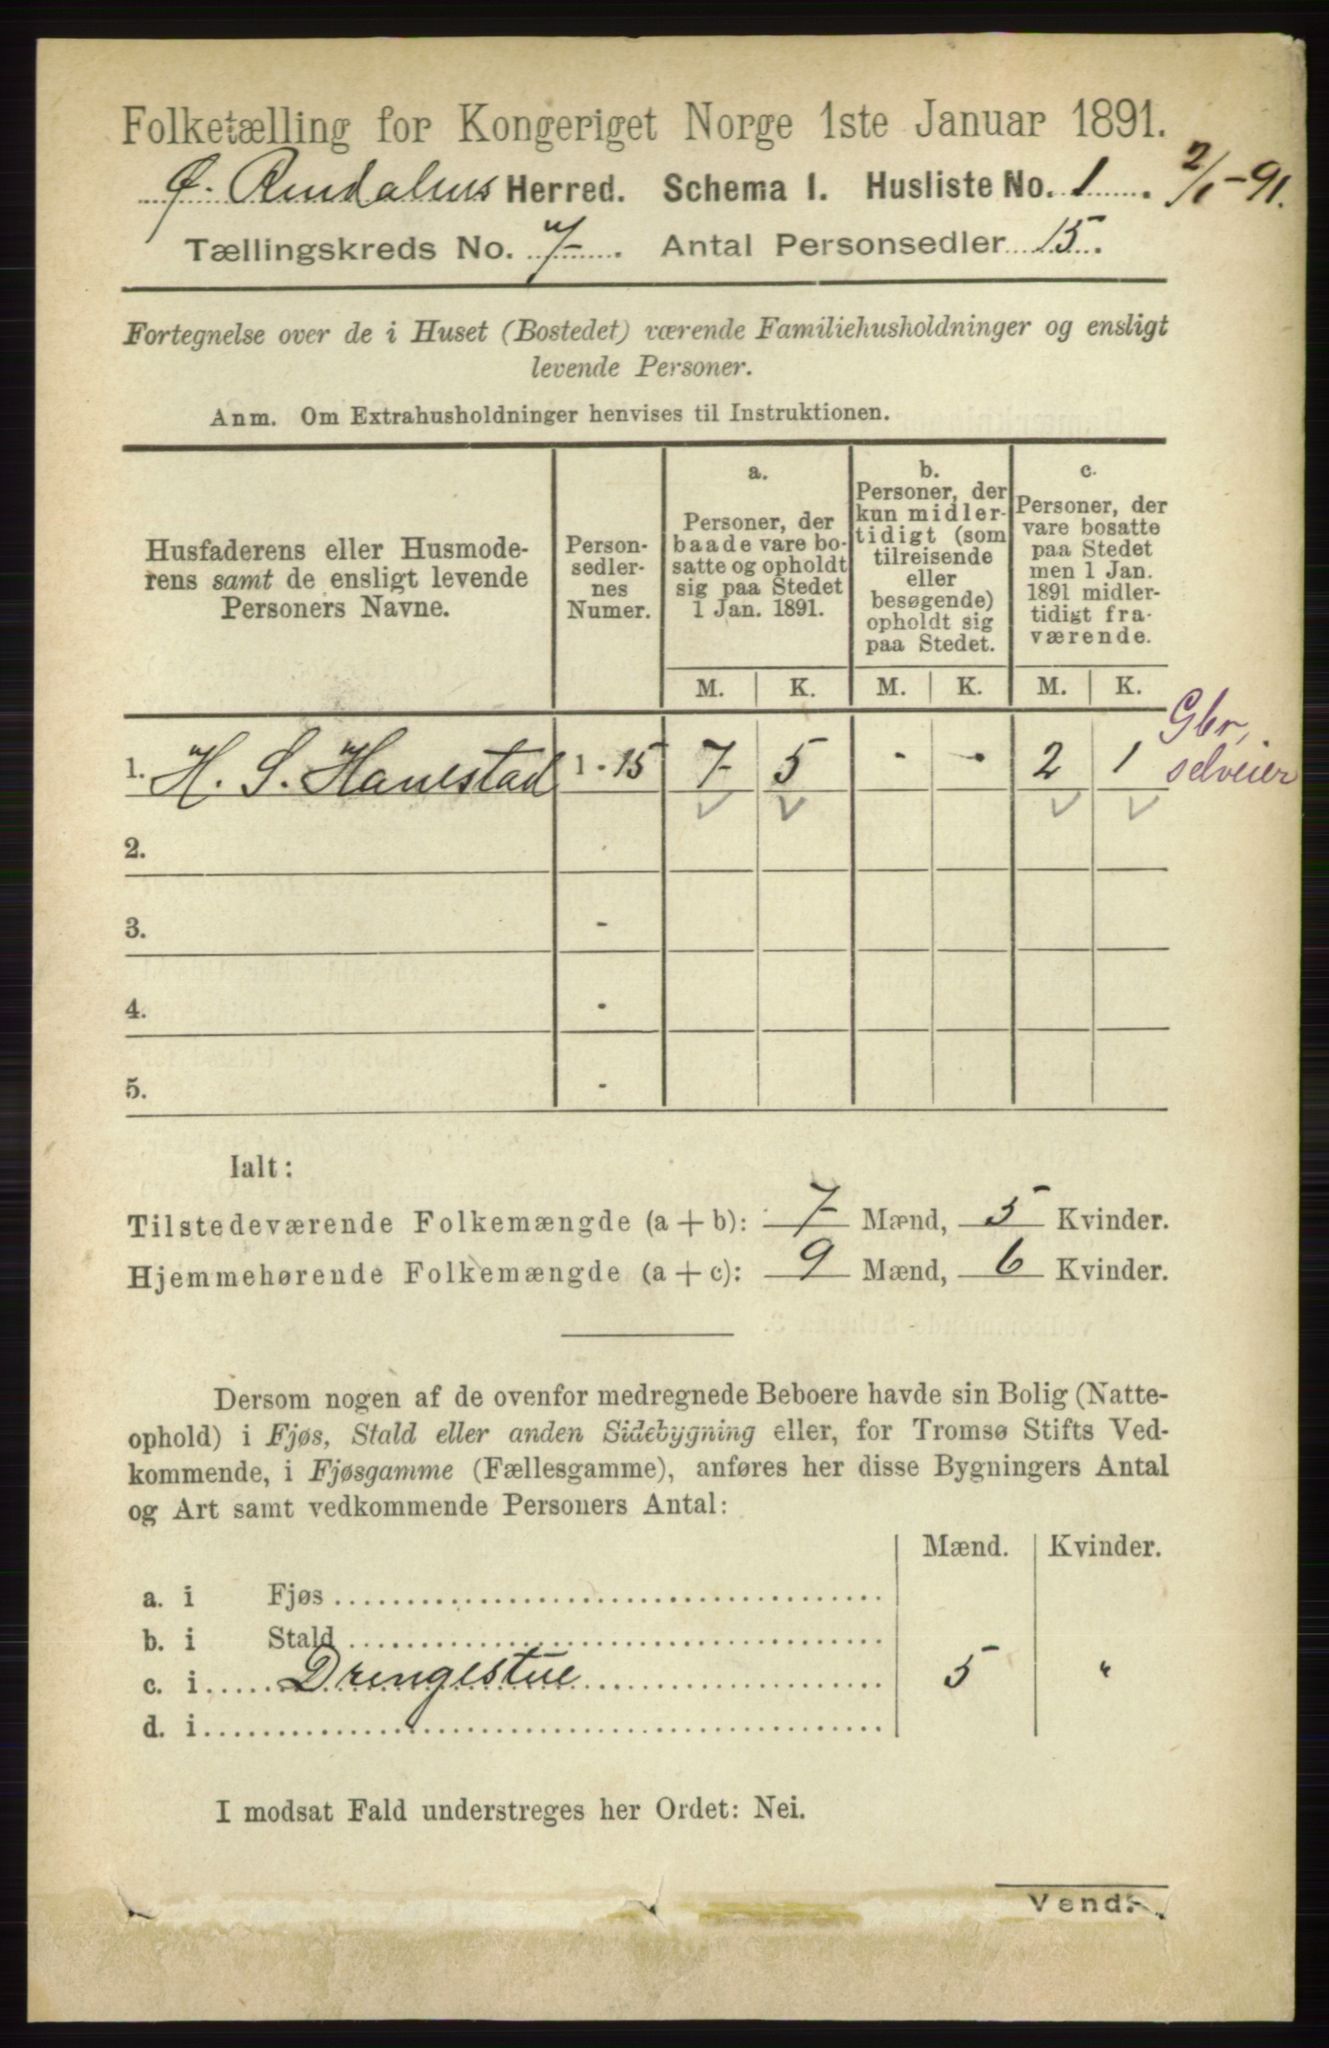 Folketælling for Kongeriget Norge 1ste Januar 1891.
Ø. Rendalens Herred. Schema 1. Husliste No. 1. 2/1-91.
Tællingskreds No. 7. Antal Personsedler 15.
Fortegnelse over de i Huset (Bostedet) værende Familiehusholdninger og ensligt
levende Personer.
Anm. Om Extrahusholdninger henvises til Instruktionen.
Husfaderens eller Husmode-
rens samt de ensligt levende
Personers Navne.
Person-
sedler-
nes
Numer.
a.
Personer, der
baade vare bo-
satte og opholdt
sig paa Stedet
1 Jan. 1891.
b.
Personer, der
kun midler-
tidigt (som
tilreisende
eller
besøgende)
opholdt sig
paa Stedet.
c.
Personer, der
vare bosatte
paa Stedet
men 1 Jan.
1891 midler-
tidigt fra-
værende.
M. K. M. K. M. K.
1. H. S. Hanestad 1 - 15 7 5 - - 2 1 Gbr, selveier
2.
3. -
4. -
5. -
Ialt:
Tilstedeværende Folkemængde (a + b): 7 Mænd, 5 Kvinder.
Hjemmehørende Folkemængde (a + c): 9 Mænd, 6 Kvinder.
Dersom nogen af de ovenfor medregnede Beboere havde sin Bolig (Natte-
ophold) i Fjøs, Stald eller anden Sidebygning eller, for Tromsø Stifts Ved-
kommende, i Fjøsgamme (Fællesgamme), anføres her disse Bygningers Antal
og Art samt vedkommende Personers Antal:
Mænd. Kvinder.
a. i Fjøs
b. i Stald
c. i Drengestue 5 "
d. i
I modsat Fald understreges her Ordet: Nei.
Vend.